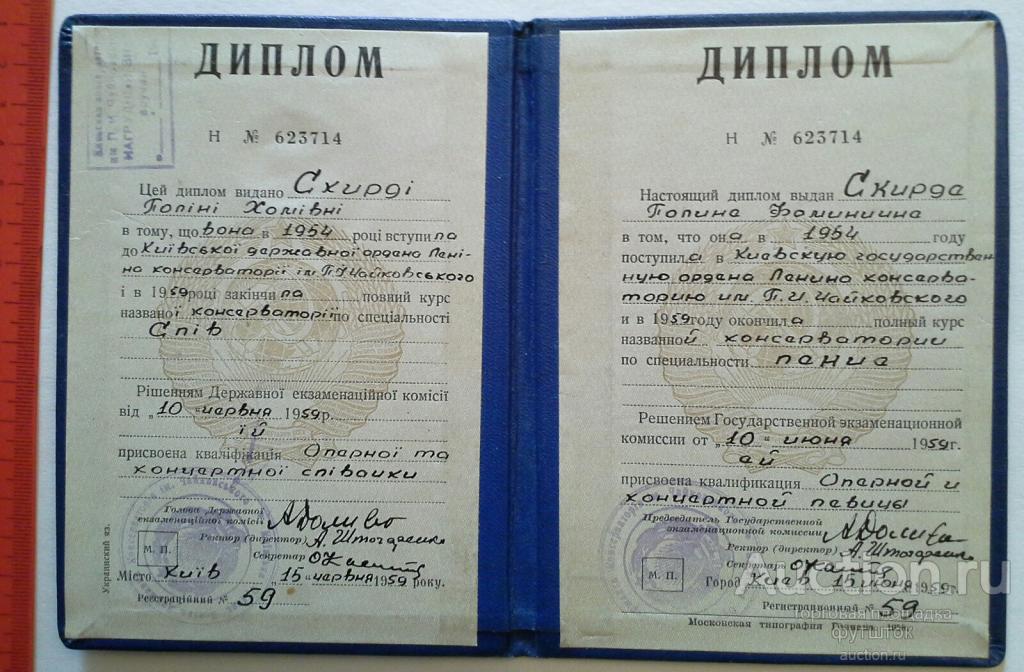 ДИПЛОМ
Н № 623714
Цей диплом видано Скирді
Поліні Хомівні
в тому, що вона в 1954 році вступила
до Київської державної ордена Лені-
на консерваторії ім. П.І. Чайковського
і в 1959 році закінчила повний курс
названої консерваторії по спеціальності
Спів
Рішенням Державної екзаменаційної комісії
від „10 червня 1959 р.
їй
присвоєна кваліфікація Оперної та
концертної співачки
Голова Державної
екзаменаційної комісії
Ректор (директор)
Секретар
М. П.
Місто Київ „15 червня 1959 року.
Реєстраційний № 59
Украинский яз.
ДИПЛОМ
Н № 623714
Настоящий диплом выдан Скирда
Полина Фоминична
в том, что она в 1954 году
поступила в Киевскую государствен
ную ордена Ленина консерва-
торию им. П.И. Чайковского
и в 1959 году окончила полный курс
названной консерватории
по специальности пение
Решением Государственной экзаменационной
комиссии от „10" июня 1959 г.
ей
присвоена квалификация Оперной и
концертной певицы
Председатель Государственной
экзаменационной комиссии
Ректор (директор)
Секретарь
М. П.
Город Киев 15 июня 1959 г.
Регистрационный № 59
Московская типография Гознака. 1956.
Auction.ru
торговая площадка
футшток
auction.ru